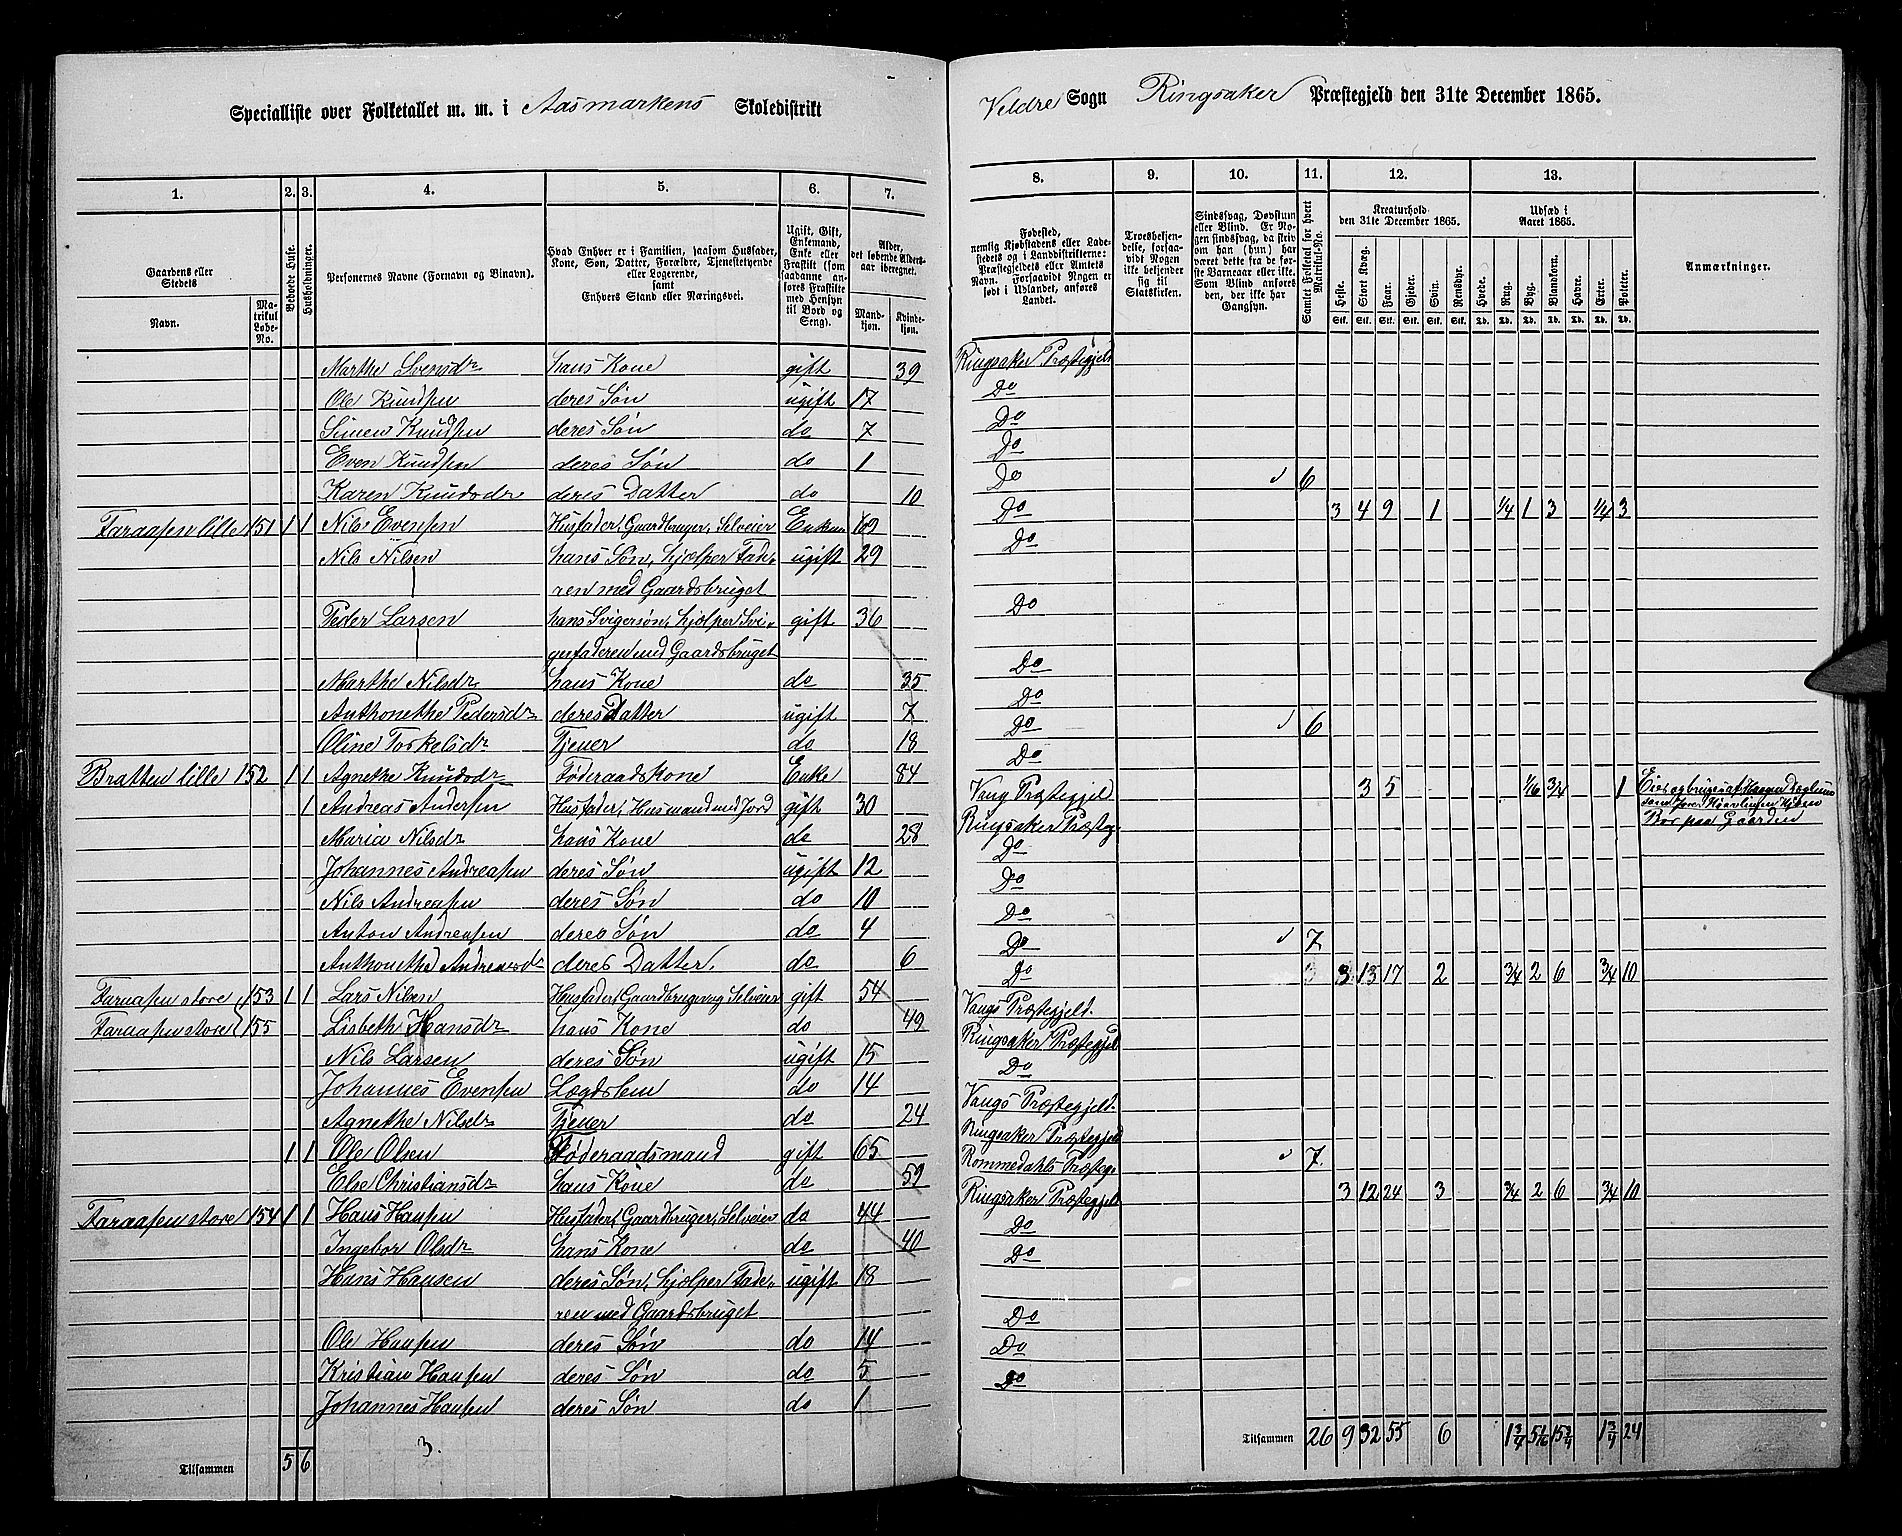 Specialliste over Folketallet m. m. i Aasmarkens Skoledistrikt
Veldre Sogn Ringsaker Præstegjeld den 31te December 1865.
1. 2. 3. 4. 5. 6. 7. 8. 9. 10. 11. 12. 13.
Gaardens eller Stedets Navn. Matrikul Løbe-No. Beboede Huse. Husholdninger.
Personernes Navne (Fornavn og Binavn).
Hvad Enhver er i Familien, saasom Husfader, Kone, Søn, Datter, Forældre, Tjenestetyende eller Logerende, samt Enhvers Stand eller Næringsvei.
Ugift, Gift, Enkemand, Enke eller Fraskilt (som saadanne anføres Fraskilte med Hensyn til Bord og Seng).
Alder, det løbende Aldersaar iberegnet. Mandkjøn. Kvindekjøn.
Fødested, nemlig Kjøbstadens eller Ladestedets og i Landdistrikterne: Præstegjeldets eller Amtets Navn. Forsaavidt Nogen er født i Udlandet, anføres Landet.
Troesbekjendelse, forsaavidt Nogen ikke bekjender sig til Statskirken.
Sindssvag, Døvstum eller Blind. Er Nogen sindssvag, da skriv om han (hun) har været dette fra de første Barneaar eller ikke. Som Blind anføres den, der ikke har Gangsyn.
Samlet Folketal for hvert Matrikul-No.
Kreaturhold den 31te December 1865. Heste. Stort Kvæg. Faar. Gjeder. Svin. Rensdyr.
Udsæd i Aaret 1865. Hvede. Rug. Byg. Blandkorn. Havre. Erter. Poteter.
Anmærkninger.
Marthe Svensdr hans Kone gift 39 Ringsaker Præstegjeld
Ole Knudsen deres Søn ugift 17 Do
Simen Knudsen deres Søn do 7 Do
Even Knudsen deres Søn do 1 Do
Karen Knudsdr deres Datter do 10 Do 6
Faraasen lille 151 1 1 Nils Evensen Husfader, Gaardbruger, Selveier Enkem 69 Do 3 4 9 1 1/4 1 3 1/4 3
Nils Nilsen hans Søn, hjælper Fade- ugift 29 Do
ren med Gaardsbruget
Peder Larsen hans Svigersøn, hjælper Svi- gift 36 Do
gerfaderen med Gaardsbruget
Marthe Nilsdr hans Kone do 35 Do
Anthonethe Pedersdr deres Datter ugift 7 Do
Oline Torkelsdr Tjener do 18 Do 6
Bratten lille 152 1 1 Agnethe Knudsdr Føderaadskone Enke 84 Do
1 Andreas Andersen Husfader, Husmand med Jord gift 30 Vang Præstegjeld 3 5 1/16 3/4 1
Bor paa Gaarden
Maria Nilsdr hans Kone do 28 Ringsaker Præsteg.
Johannes Andreasen deres Søn ugift 12 Do
Nils Andreasen deres Søn do 10 Do
Anton Andreasen deres Søn do 4 Do
Anthonethe Andreasdr deres Datter. do 6 Do 7
Faraasen store 153 1 1 Lars Nilsen Husfader, Gaardbruger og Selveier gift 54 Do 3 13 17 2 3/4 2 6 3/4 10
Faraasen store 155 Lisbeth Hansdr hans Kone do 49 Vangs Præstegjeld.
Nils Larsen deres Søn ugift 15 Ringsaker Præstegjeld
Johannes Evensen Lægdslem do 14 Do
Agnethe Nilsdr Tjener do 24 Vangs Præstegjeld.
1 1 Ole Olsen Føderaadsmand gift 65 Ringsaker Præstegjeld
Else Christiansdr hans Kone do 59 Rommedahls Præsteg. 7.
Faraasen store 154 1 1 Hans Hansen Husfader, Gaardbruger, Selveier do 44 Ringsaker Præstegjeld 3 12 24 3 3/4 2 6 3/4 10
Ingebor Olsdr hans Kone do 40 Do
Hans Hansen deres Søn, hjælper Fade- ugift 18 Do
ren med Gaardsbruget
Ole Hansen deres Søn do 14 Do
Kristian Hansen deres Søn do 5 Do
Johannes Hansen deres Søn do 1 Do
Tilsammen 5 6 3. Tilsammen 26 9 32 55 6 1 3/4 5 1/16 15 3/4 1 3/4 24